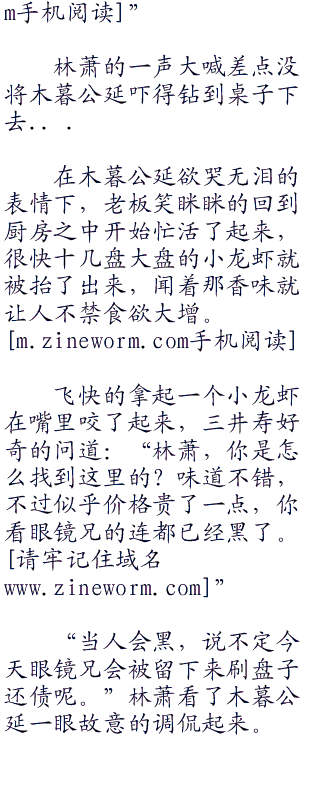 m手机阅读]”
林萧的一声大喊差点没
将木暮公延吓得钻到桌子下
去...
在木暮公延欲哭无泪的
表情下，老板笑眯眯的回到
厨房之中开始忙活了起来，
很快十几盘大盘的小龙虾就
被抬了出来，闻着那香味就
让人不禁食欲大增。
[m.zineworm.com手机阅读]
飞快的拿起一个小龙虾
在嘴里咬了起来，三井寿好
奇的问道：“林萧，你是怎
么找到这里的？味道不错，
不过似乎价格贵了一点，你
看眼镜兄的连都已经黑了。
[请牢记住域名
www.zineworm.com]”
“当人会黑，说不定今
天眼镜兄会被留下来刷盘子
还债呢。”林萧看了木暮公
延一眼故意的调侃起来。